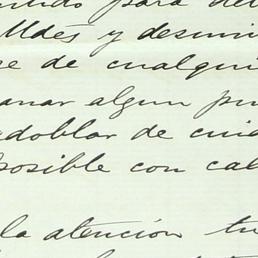 para de
Uldes y desmi
de cualqui
anar algun pu
edoblar de cuid
posible con cal
la atención tu